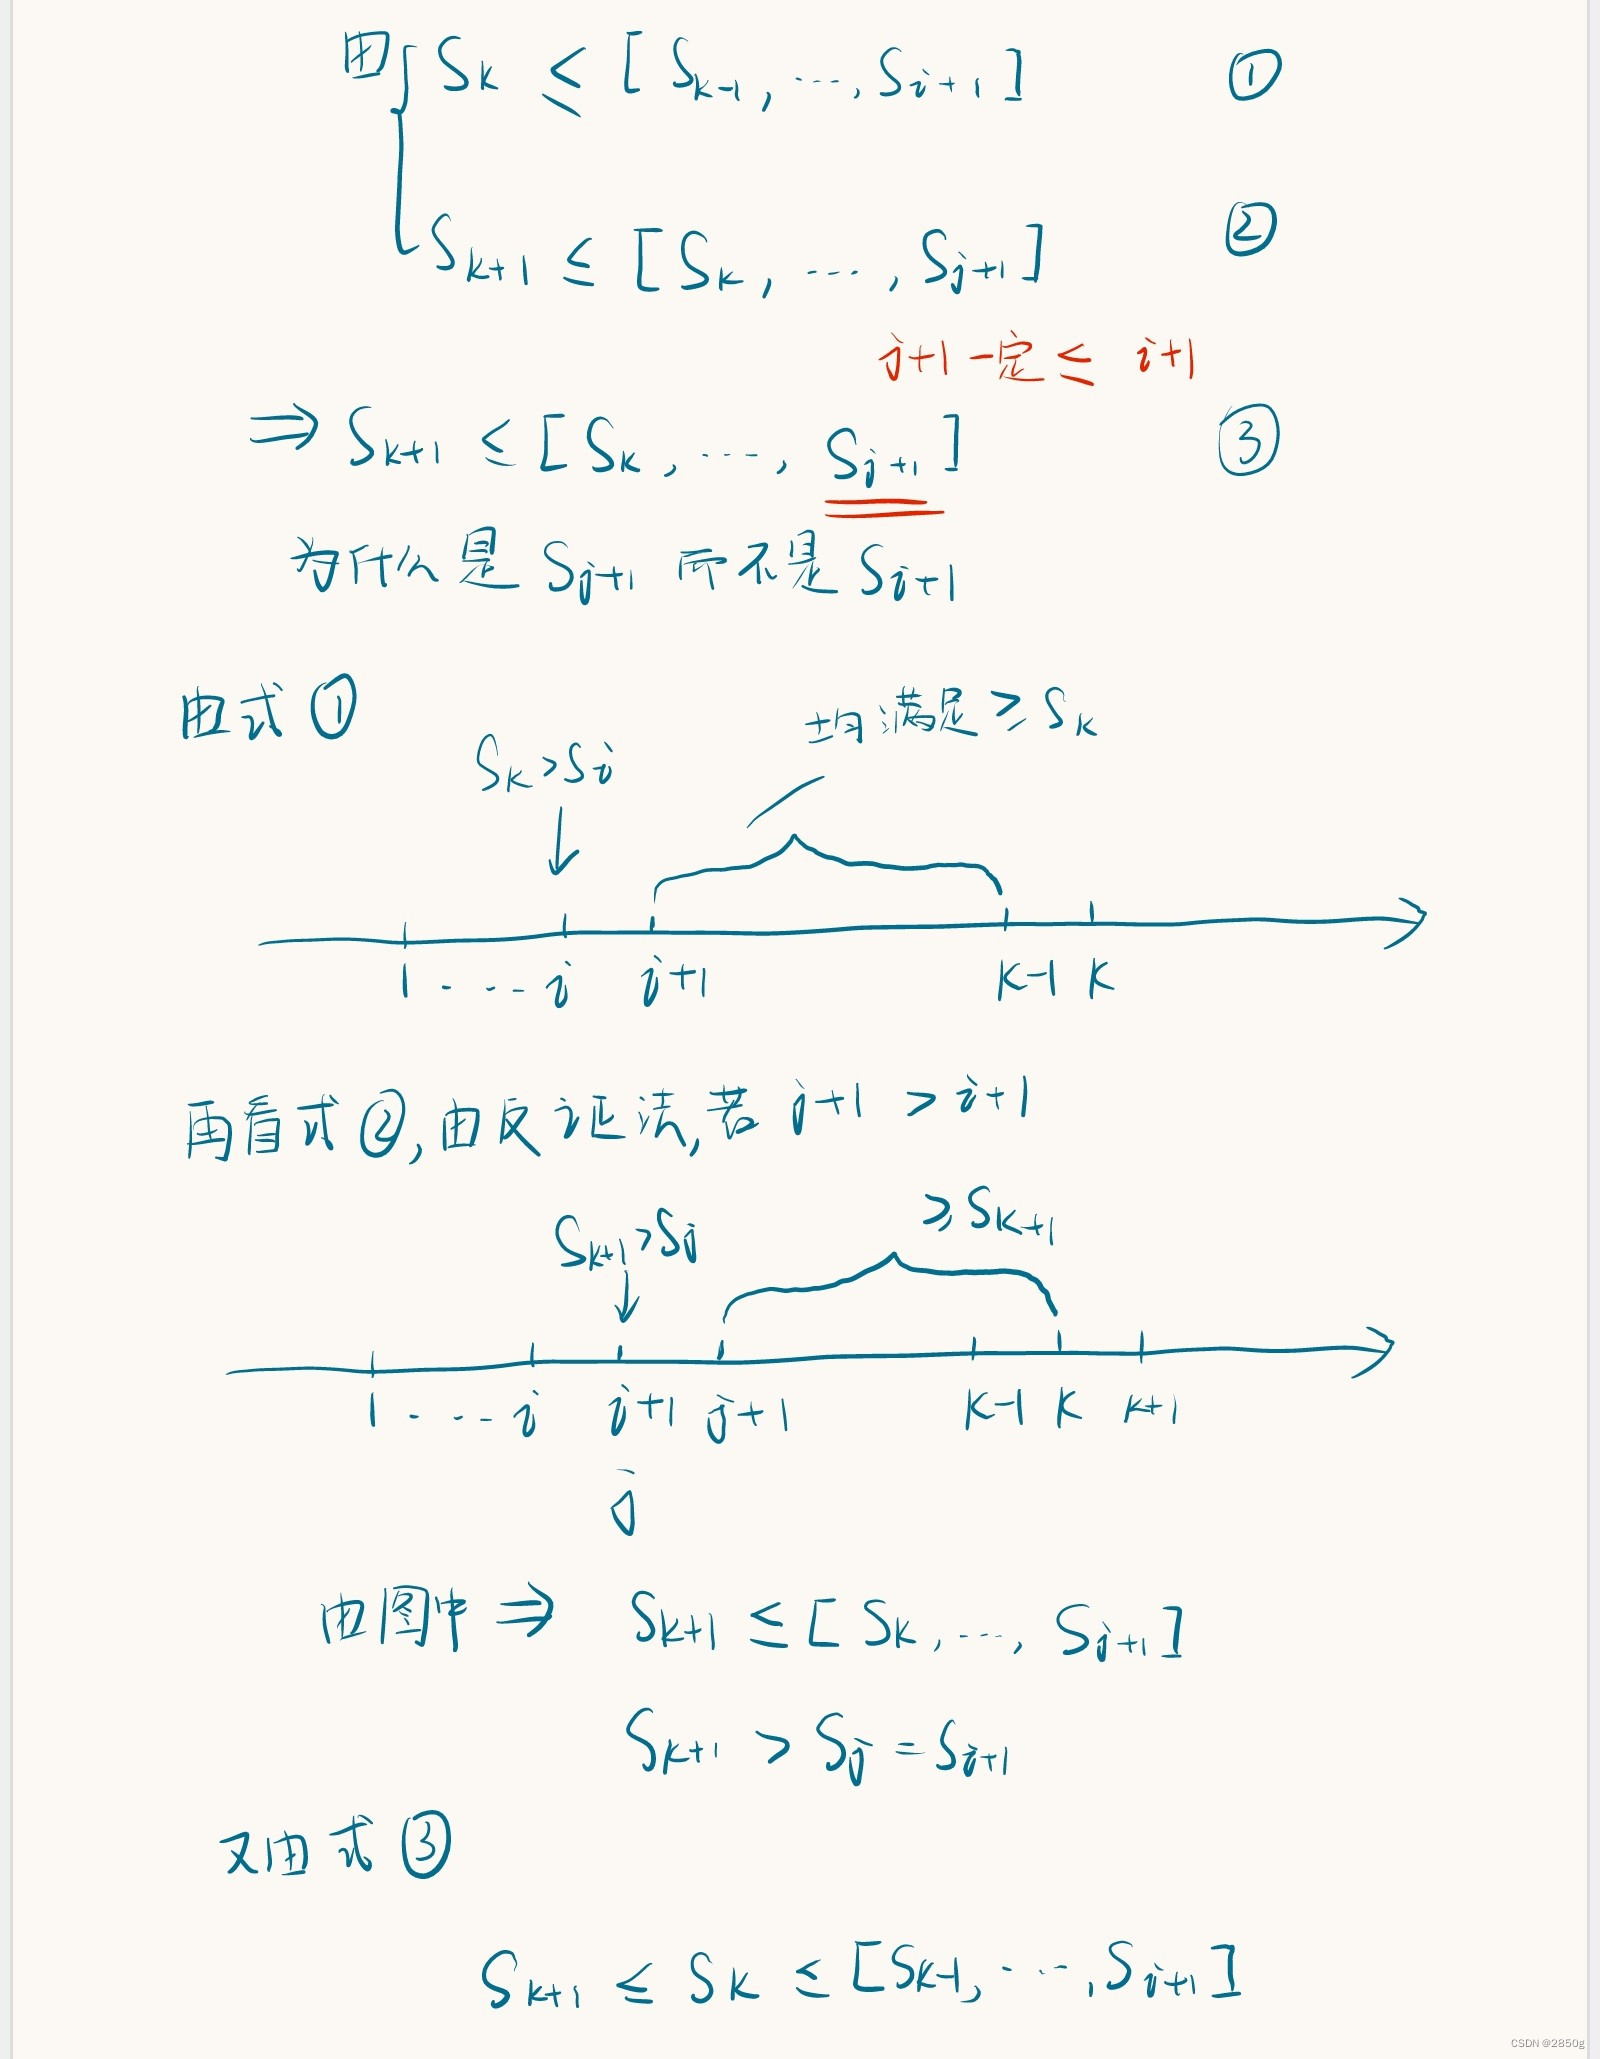 由 { Sk ≤ [Sk-1, ..., Si+1] ①
Sk+1 ≤ [Sk, ..., Sj+1] ②
j+1 一定 ≤ i+1
⇒ Sk+1 ≤ [Sk, ..., Sj+1] ③
为什么是 Sj+1 而不是 Si+1
由式①
均满足 ≥ Sk
Sk > Si
1 ... i i+1 k-1 k
再看式②, 由反证法, 若 j+1 > i+1
≥ Sk+1
Sk+1 > Sj
1 ... i i+1 j+1 k-1 k k+1
j
由图中 ⇒ Sk+1 ≤ [Sk, ..., Sj+1]
Sk+1 > Sj = Si+1
又由式③
Sk+1 ≤ Sk ≤ [Sk-1, ..., Si+1]
CSDN @2850g